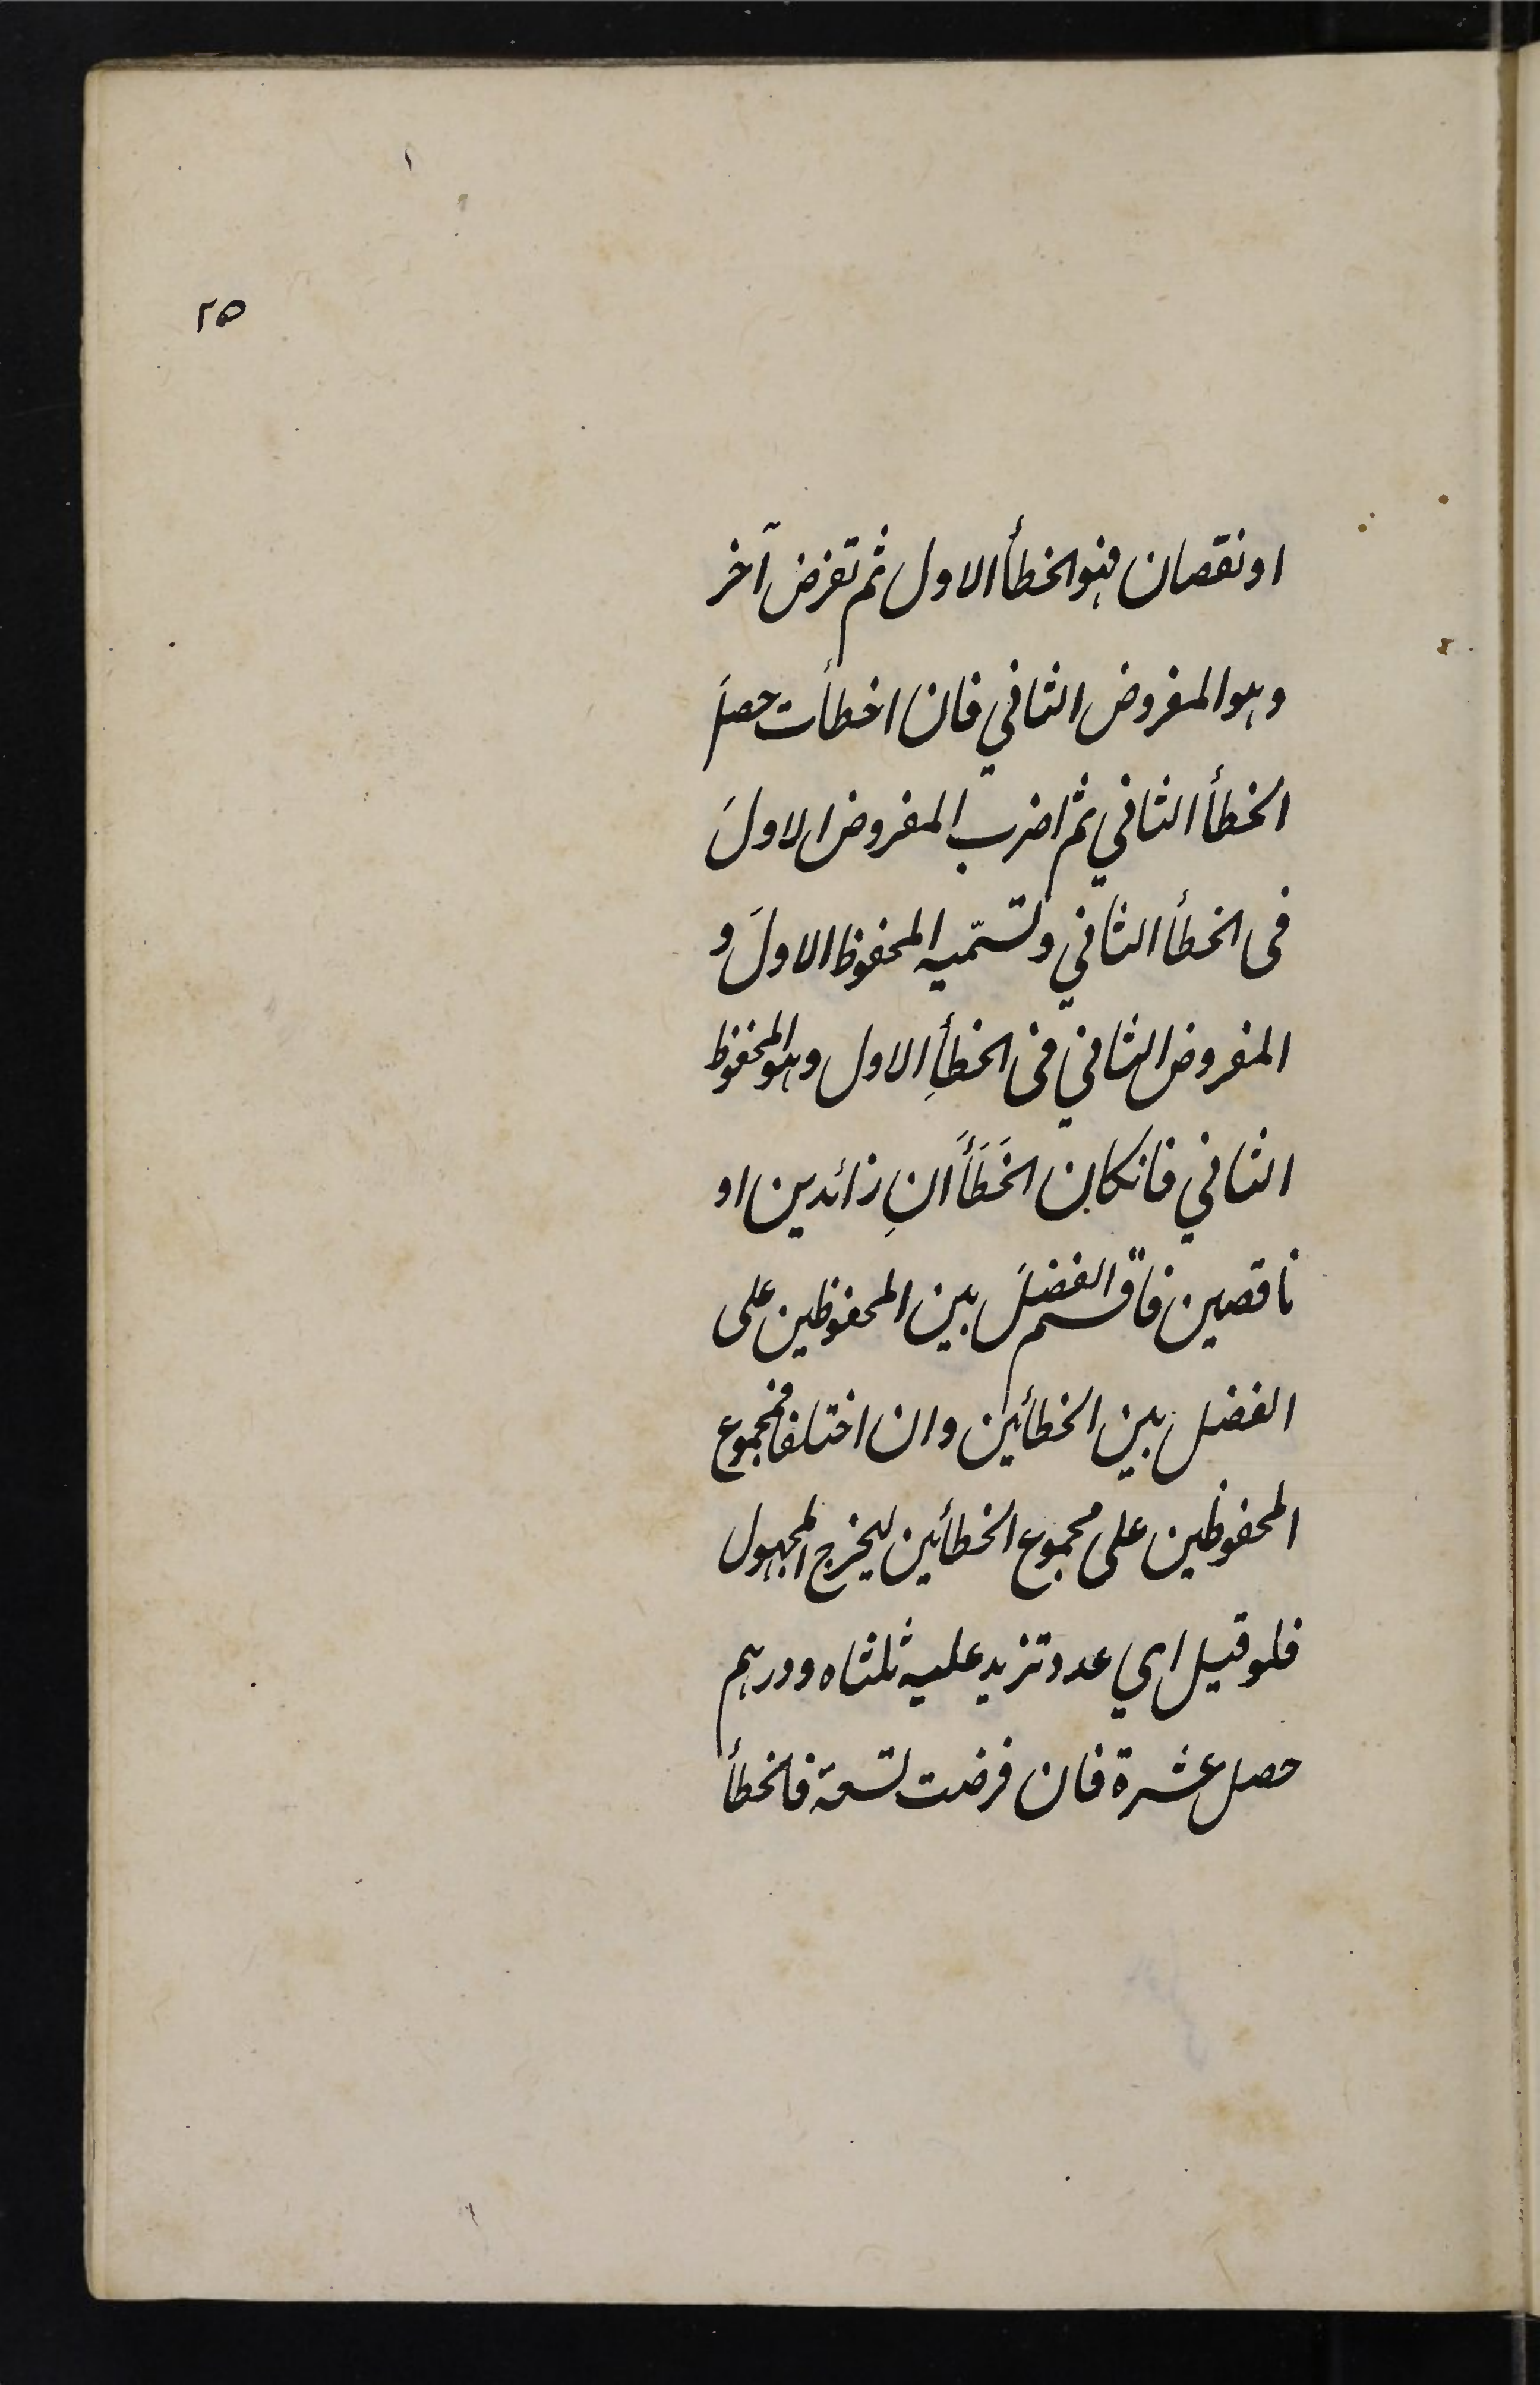 ٢٥
او نقصان فهو الخطأ الاول ثم تفرض آخر
وهو المفروض الثاني فان اخطأت حصلَ
الخطأ الثاني ثم اضرب المفروض الاولَ
فى الخطأ الثاني وتسمّيه المحفوظ الاولَ و
المفروض الثاني فى الخطأِ الاول وهو المحفوظ
الثاني فانكان الخَطَأَانِ زائدين او
ناقصين فاقسم الفضلَ بين المحفوظين على
الفضل بين الخطأين وان اختلفا فمجموع
المحفوظين على مجموع الخطأين ليخرج المجهول
فلو قيل اي عدد تزيد عليه ثلثاه ودرهم
حصل عشرة فان فرضت تسعة فالخطأ